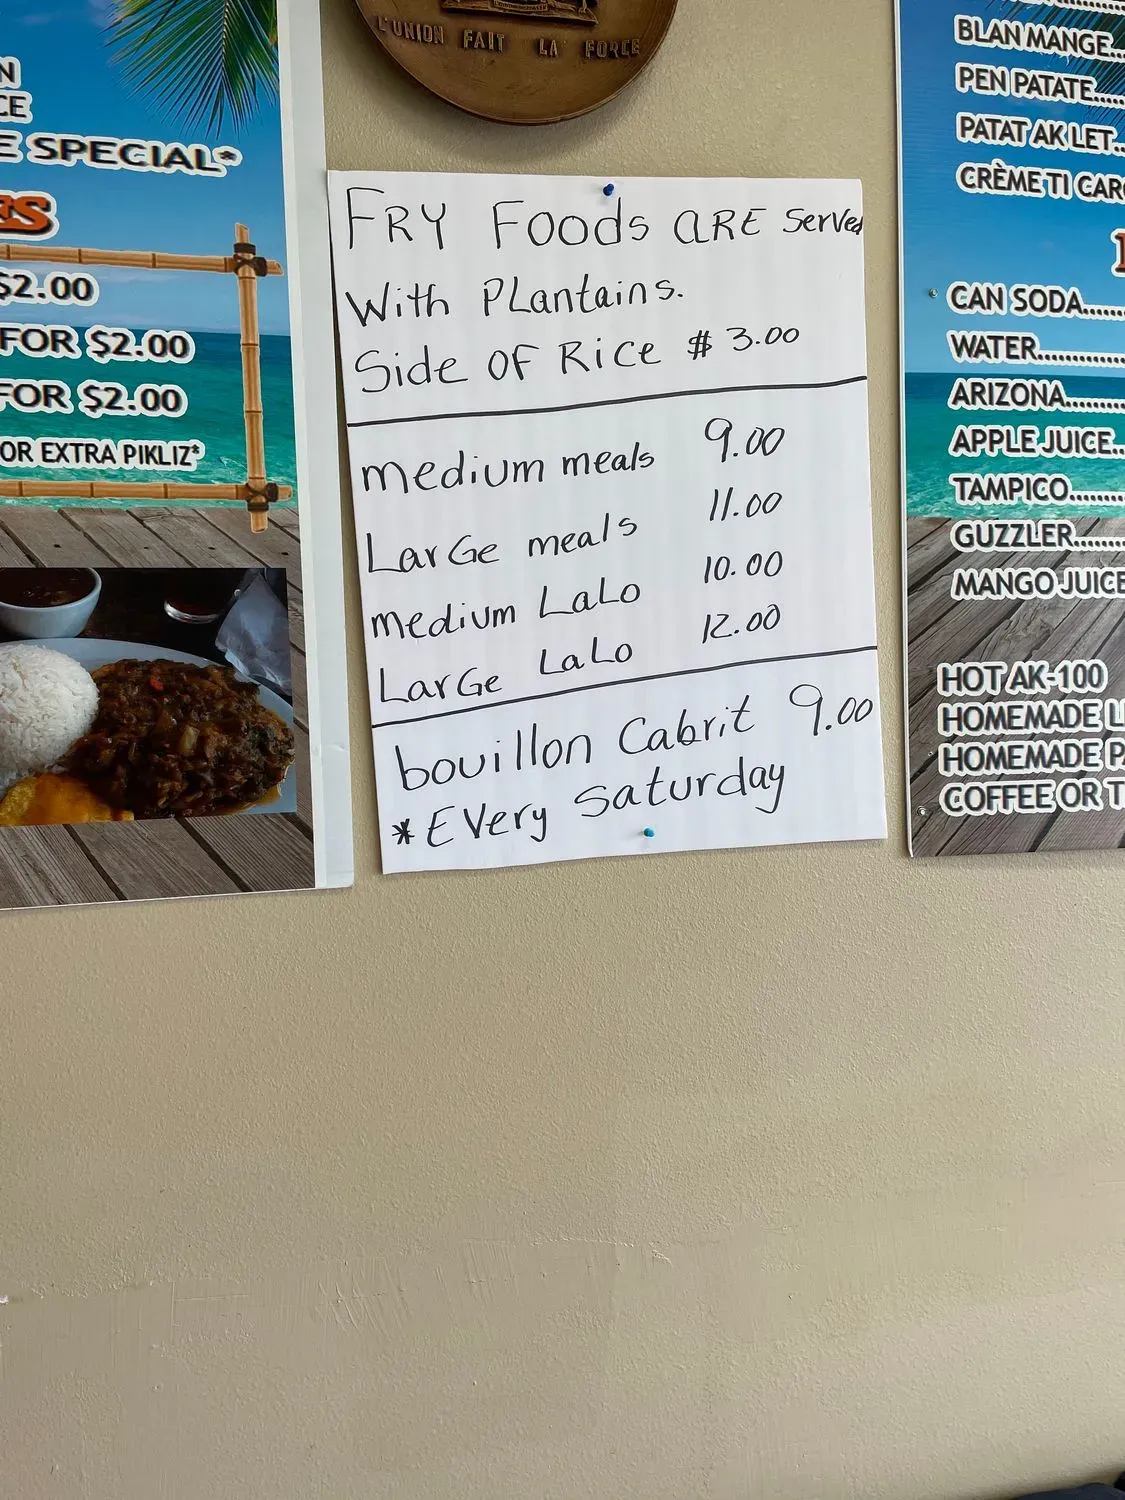 L'UNION FAIT LA FORCE
SPECIAL*
$2.00
FOR $2.00
FOR $2.00
OR EXTRA PIKLIZ*
FRY Foods ARE Served
With PLantains.
Side OF Rice $ 3.00
medium meals 9.00
LarGe meals 11.00
medium LaLo 10.00
LarGe LaLo 12.00
bouillon Cabrit 9.00
*EVery Saturday
BLAN MANGE...
PEN PATATE.....
PATAT AK LET..
CRÈME TI CAR
CAN SODA......
WATER............
ARIZONA........
APPLE JUICE...
TAMPICO........
GUZZLER........
MANGO JUICE
HOT AK-100
HOMEMADE
HOMEMADE
COFFEE OR